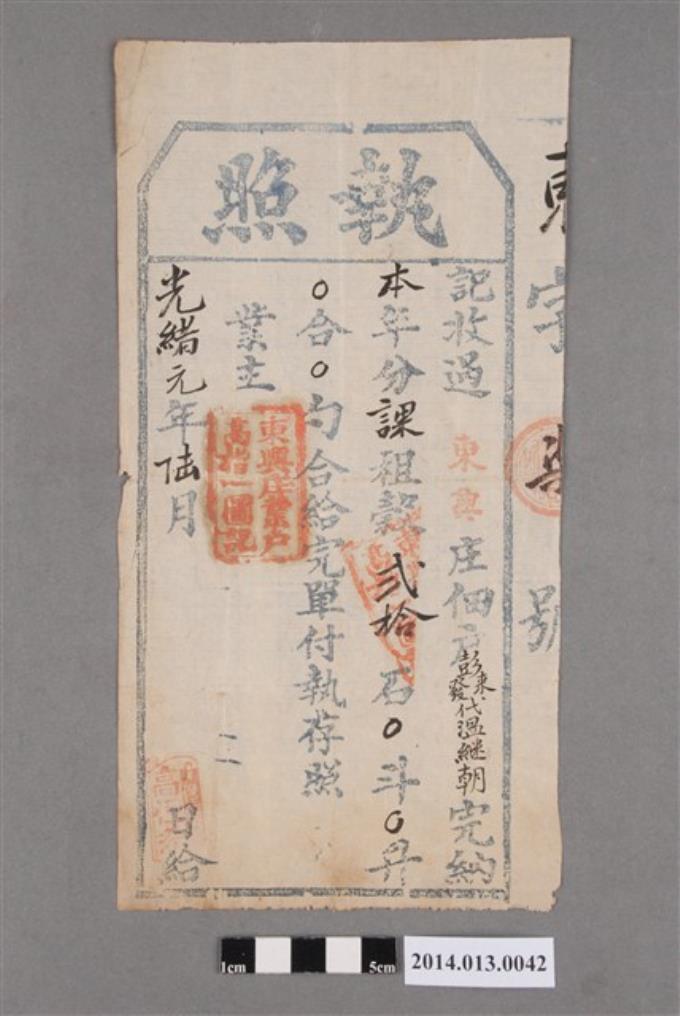 執照
東字 號
記收過東興庄佃戶彭東發代溫繼朝完納
本年分課租穀貳拾石0斗0升
0合0勺合給完單付執存照
業主
東興庄業戶
圖記
光緒元年陸月 二 日給
1cm 5cm
2014.013.0042